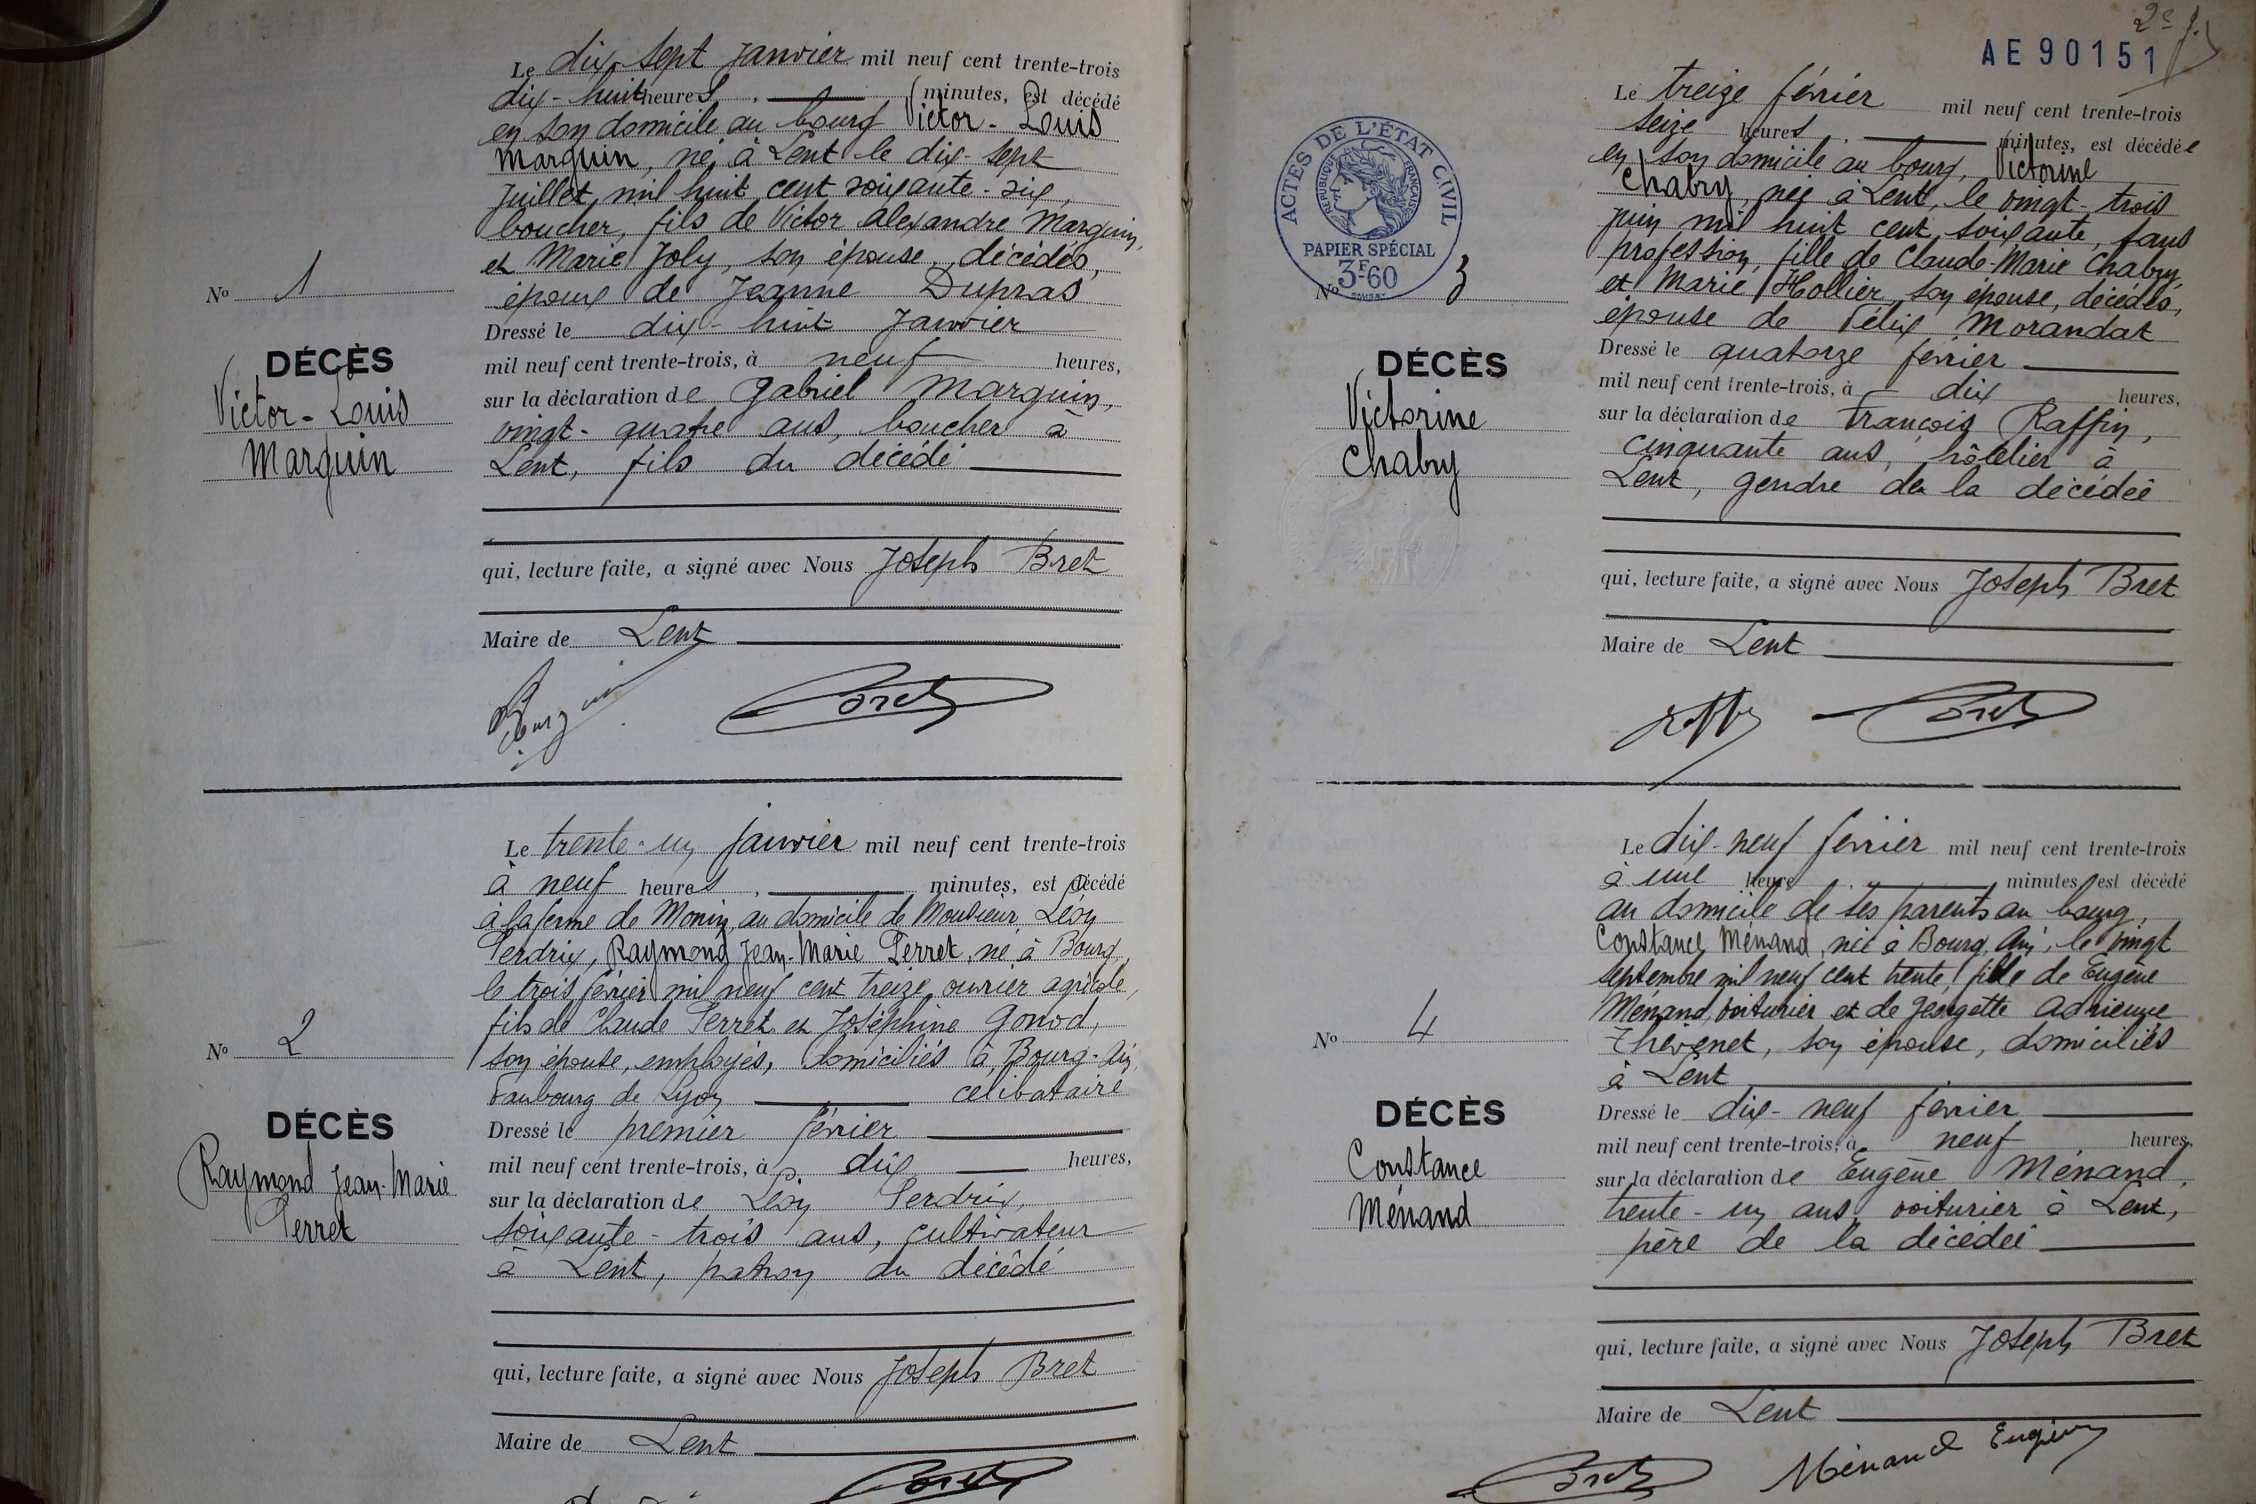 Le dix-sept Janvier mil neuf cent trente-trois
dix-huit heures . minutes, est décédé
en son domicile au bourg Victor-Louis
Marguin, né à Lent le dix-sept
Juillet mil huit cent soixante-six,
boucher, fils de Victor Alexandre Marguin,
et Marie Joly, son épouse, décédés,
époux de Jeanne Dupras
Dressé le dix-huit Janvier
mil neuf cent trente-trois, à neuf heures,
sur la déclaration de Gabriel Marguin,
vingt-quatre ans, boucher à
Lent, fils du décédé
qui, lecture faite, a signé avec Nous Joseph Bret
Maire de Lent
No 1
DÉCÈS
Victor-Louis
Marguin
Bret
Le trente-un Janvier mil neuf cent trente-trois
à neuf heures . minutes, est décédé
à la ferme de Monin, au domicile de Monsieur Léon
Perdrix, Raymond Jean-Marie Perret, né à Bourg
le trois février mil neuf cent treize, ouvrier agricole,
fils de Claude Perret et Joséphine Gonod,
son épouse, employés, domiciliés à Bourg-Ain,
Faubourg de Lyon célibataire
Dressé le premier février
mil neuf cent trente-trois, à dix heures,
sur la déclaration de Léon Perdrix,
soixante-trois ans, cultivateur
à Lent, patron du décédé
qui, lecture faite, a signé avec Nous Joseph Bret
Maire de Lent
No 2
DÉCÈS
Raymond Jean-Marie
Perret
Bret
AE 90151
ACTES DE L'ÉTAT CIVIL
RÉPUBLIQUE FRANÇAISE
PAPIER SPÉCIAL
3F60
Le treize février mil neuf cent trente-trois
seize heures . minutes, est décédée
en son domicile au bourg, Victorine
Chabry, née à Lent, le vingt-trois
juin mil huit cent soixante, sans
profession, fille de Claude-Marie Chabry
et Marie Hollier, son épouse, décédés,
épouse de Félix Morandat
Dressé le quatorze février
mil neuf cent trente-trois, à dix heures,
sur la déclaration de François Raffin,
cinquante ans, hôtelier à
Lent, gendre de la décédée
qui, lecture faite, a signé avec Nous Joseph Bret
Maire de Lent
No 3
DÉCÈS
Victorine
Chabry
Bret
Le dix-neuf février mil neuf cent trente-trois
à une heure . minutes est décédé
au domicile de ses parents au bourg,
Constance Ménand, née à Bourg, Ain, le vingt
septembre mil neuf cent trente, fille de Eugène
Ménand, voiturier et de Georgette Adrienne
Thévenet, son épouse, domiciliés
à Lent
Dressé le dix-neuf février
mil neuf cent trente-trois, à neuf heures,
sur la déclaration de Eugène Ménand,
trente-un ans, voiturier à Lent,
père de la décédée
qui, lecture faite, a signé avec Nous Joseph Bret
Maire de Lent
No 4
DÉCÈS
Constance
Ménand
Bret Ménand Eugène